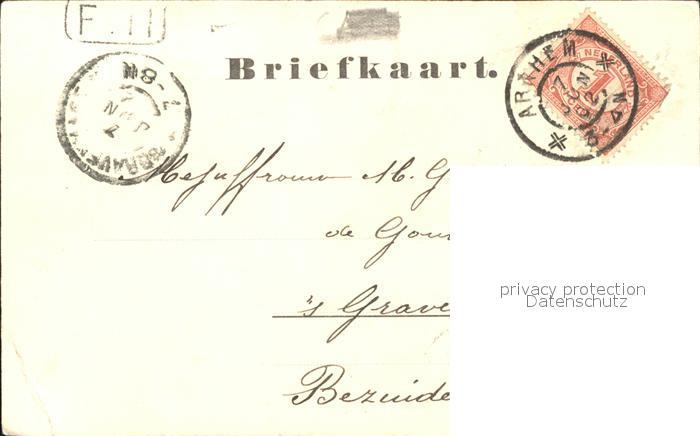 F. 11
Briefkaart.
ARNHEM
NEDERLAND
1
7-8N
Mejuffrouw M. G
de Gou
's Grave
Bezuide
privacy protection
Datenschutz